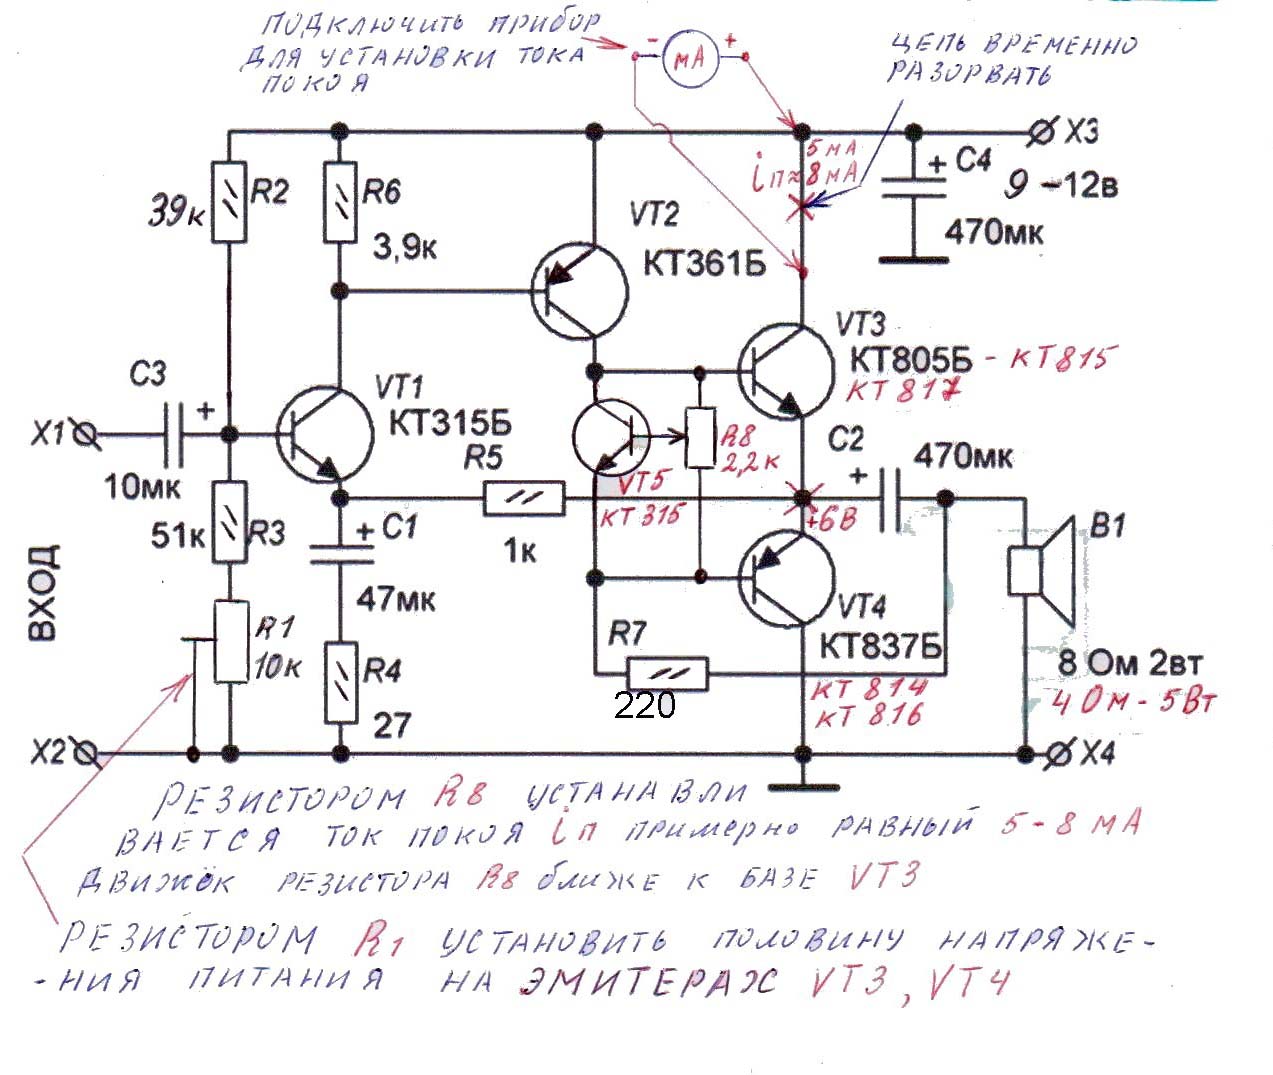 ПОДКЛЮЧИТЬ ПРИБОР
ДЛЯ УСТАНОВКИ ТОКА
ПОКОЯ
- мА +
ЦЕПЬ ВРЕМЕННО
РАЗОРВАТЬ
X3
5 мА
iп≈8мА
+ C4
9 -12в
470мк
R2
39к
R6
3,9к
VT2
КТ361Б
VT3
КТ805Б - КТ815
КТ817
C3
+
X1
10мк
VT1
КТ315Б
R5
1к
R8
2,2к
VT5
КТ315
C2
+
470мк
+6В
51к R3
+ C1
47мк
B1
ВХОД
R1
10к
R4
27
R7
220
VT4
КТ837Б
КТ814
КТ816
8 Ом 2вт
4 Ом - 5Вт
X2
X4
РЕЗИСТОРОМ R8 УСТАНАВЛИ
ВАЕТСЯ ТОК ПОКОЯ iп примерно РАВНЫЙ 5-8 мА
ДВИЖОК РЕЗИСТОРА R8 ближе к БАЗЕ VT3
РЕЗИСТОРОМ R1 УСТАНОВИТЬ ПОЛОВИНУ НАПРЯЖЕ-
-НИЯ ПИТАНИЯ НА ЭМИТЕРАХ VT3, VT4